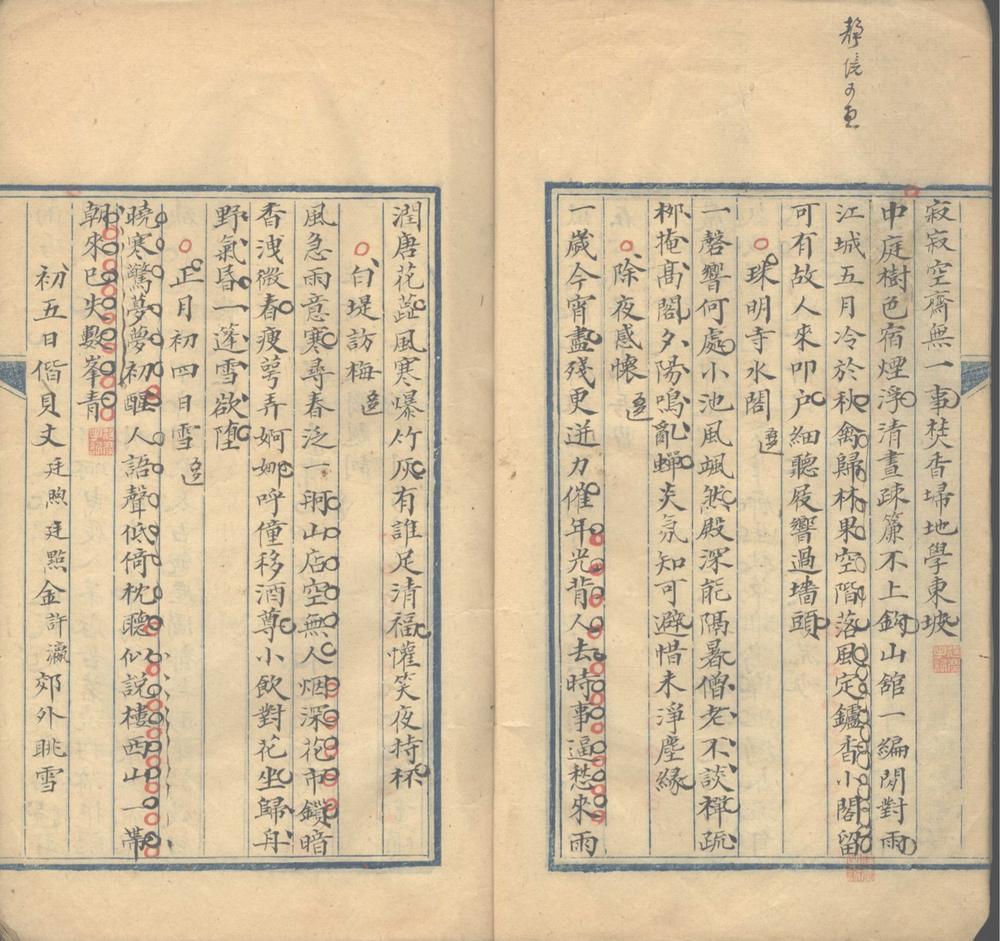 靜
寂寂空齋無一事焚香埽地學東坡
中庭樹色宿煙浮清晝疎簾不上鉤山舘一編閒對雨
江城五月冷於秋禽歸林果空階落風定鑪香小閣留
可有故人來叩户細聽屐響過墻頭
珠明寺水閣
一磬響何處小池風颯然殿深能隔暑僧老不談禪疏
栁掩髙閣夕陽鳴亂蟬炎氛知可避惜未淨塵緣
除夜感懷
一歲今宵盡殘更迸力催年光背人去時事逼愁來雨
潤唐花蕋風寒爆竹灰有誰足清福懽笑夜持杯
白堤訪梅
風急雨意寒尋春泛一舸山店空無人烟深花市鎖暗
香洩微春瘦萼弄婀娜呼僮移酒尊小飲對花坐歸舟
野氣昏一蓬雪欲墮
正月初四日雪
曉寒驚夢夢初醒人語聲低倚枕聽似說樓西山一帶
朝來已失數峯青
初五日偕貝丈廷煦廷㸃金許瀛郊外眺雪